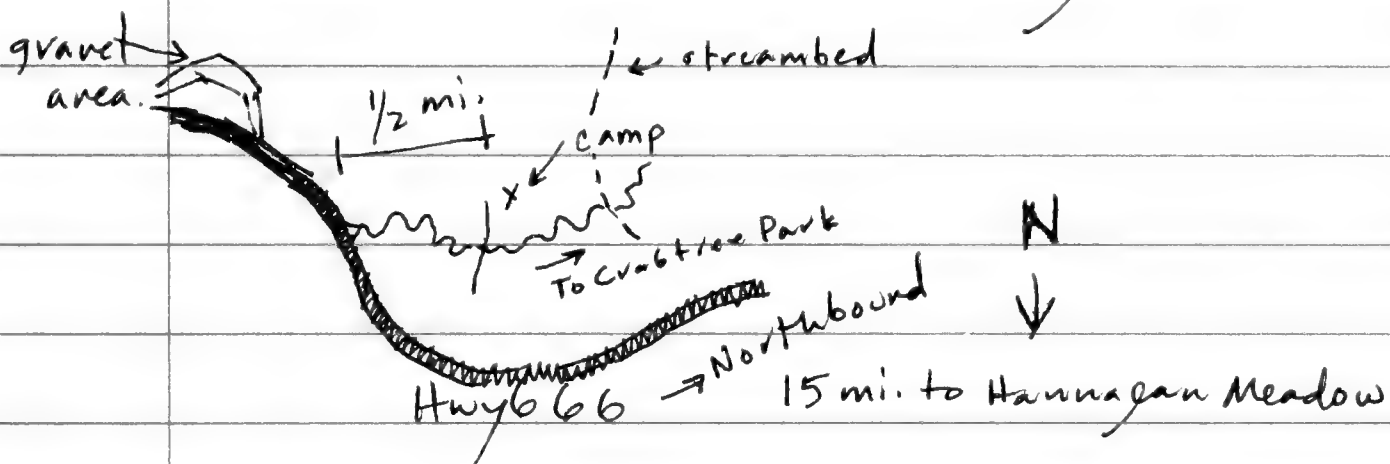 gravel
area.
1/2 mi.
streambed
camp
x
To Crabtree Park
N
Hwy 666 → Northbound
15 mi. to Hannagan Meadow